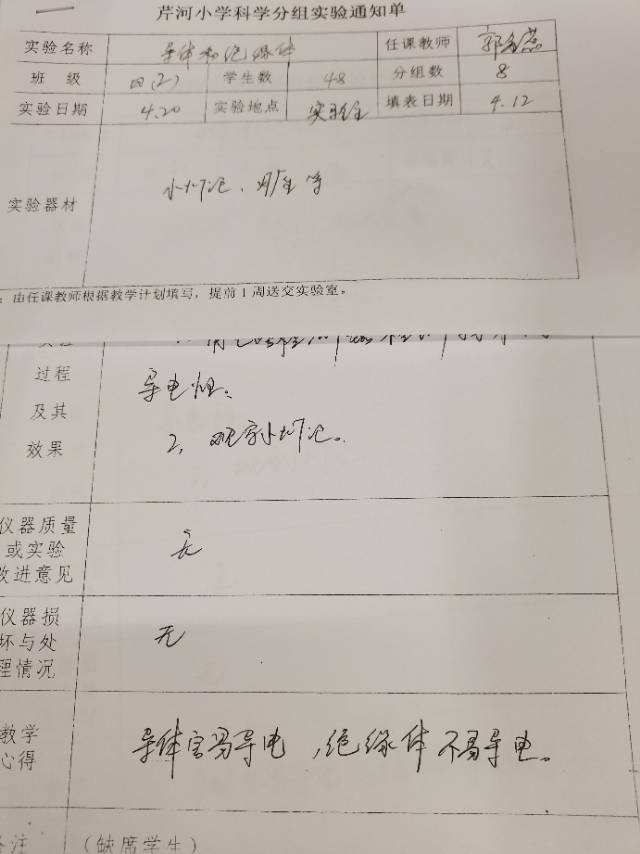 芹河小学科学分组实验通知单
实验名称 导体和绝缘体 任课教师
班 级 四(2) 学生数 48 分组数 8
实验日期 4.20 实验地点 实验室 填表日期 4.12
实验器材 小灯泡、
：由任课教师根据教学计划填写，提前1周送交实验室。
过程 导电性。
及其
效果 2，观察小灯泡。
仪器质量
或实验 无
改进意见
仪器损
坏与处 无
理情况
教学 导体容易导电，绝缘体不易导电。
心得
备注 (缺席学生)